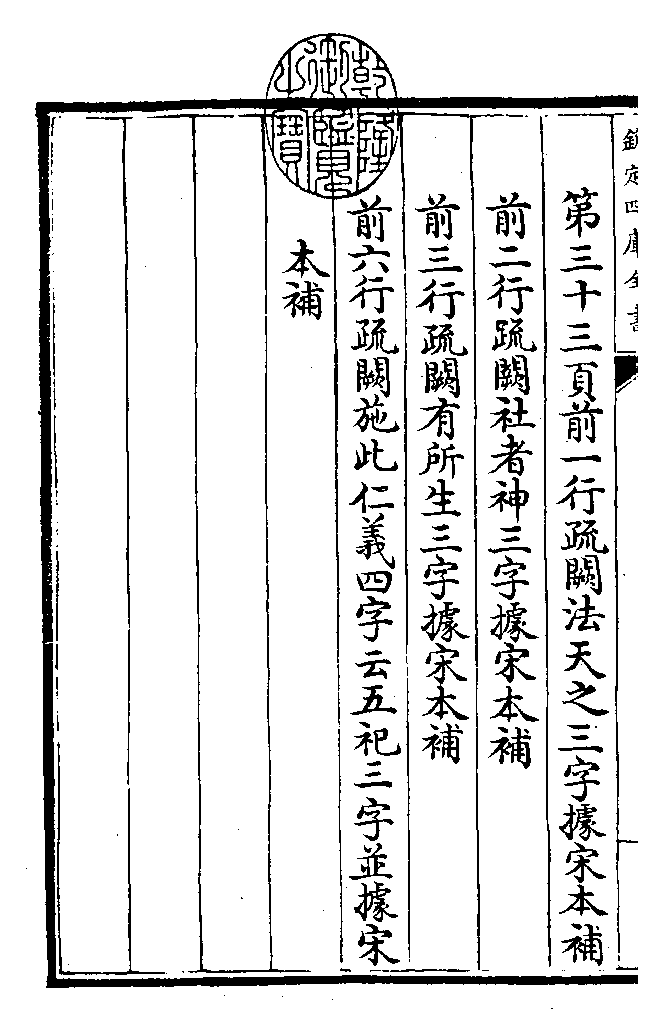 欽定四庫全書
第三十三頁前一行疏闕法天之三字據宋本補
前二行疏闕社者神三字據宋本補
前三行疏闕有所生三字據宋本補
前六行疏闕施此仁義四字云五祀三字並據宋
本補
乾隆御覽之寶